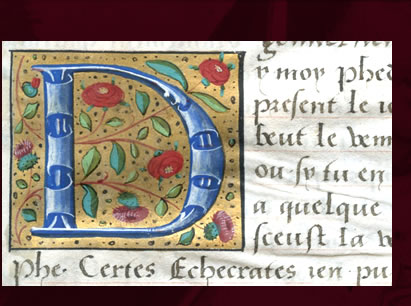 D
y moy phed
present le i
beut le ven
ou sy tu en
a quelque
sceust la v
phe. Certes Echecrates ien pu